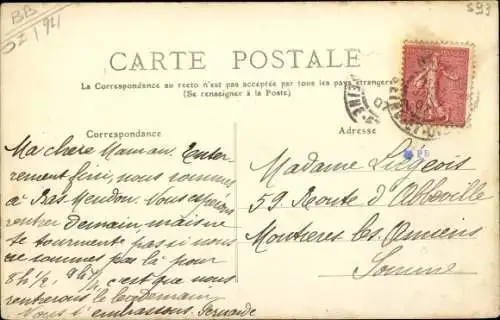 BB
593
CARTE POSTALE
La Correspondance au recto n'est pas acceptée par tous les pays étrangers
(Se renseigner à la Poste)
Correspondance
Adresse
Ma chère Maman. Enter-
rement fini, nous sommes
à Bas-Meudon. Nous espérons
rentrer Demain, mais ne
te tourmente pas si nous
ne sommes pas là pour
8h 1/2, 9h 1/4, c'est que nous
rentrerons le lendemain
Vous embrassons. Fernande
Madame Liégeois
59. Route d'Abbeville
Montières les Amiens
Somme